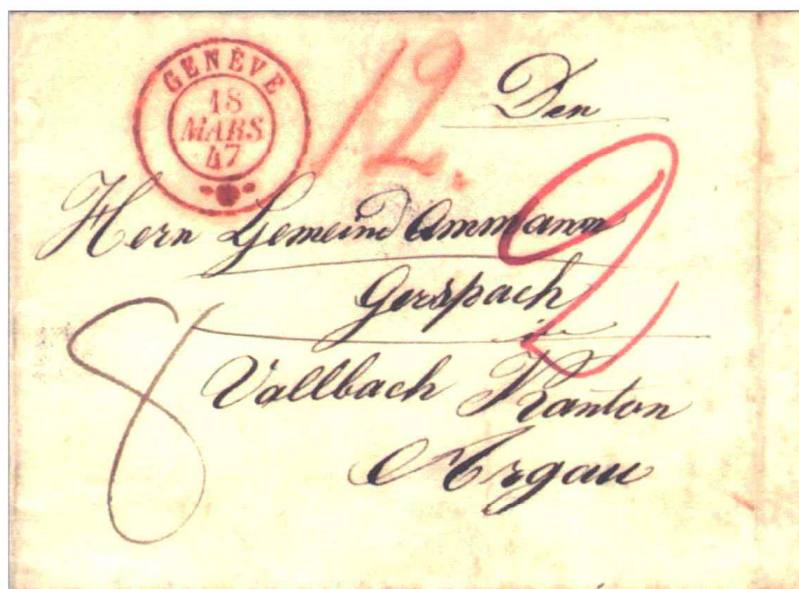 GENÈVE
18
MARS
47
12.
Den
Hern Gemeind Ammann
2
Gerspach
in
8
Vollbach Kanton
Argau